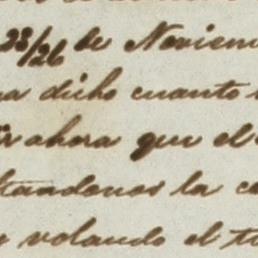 23/26 de Noviem
a dicho cuanto
ir ahora que el
tandonos la c
volando el t